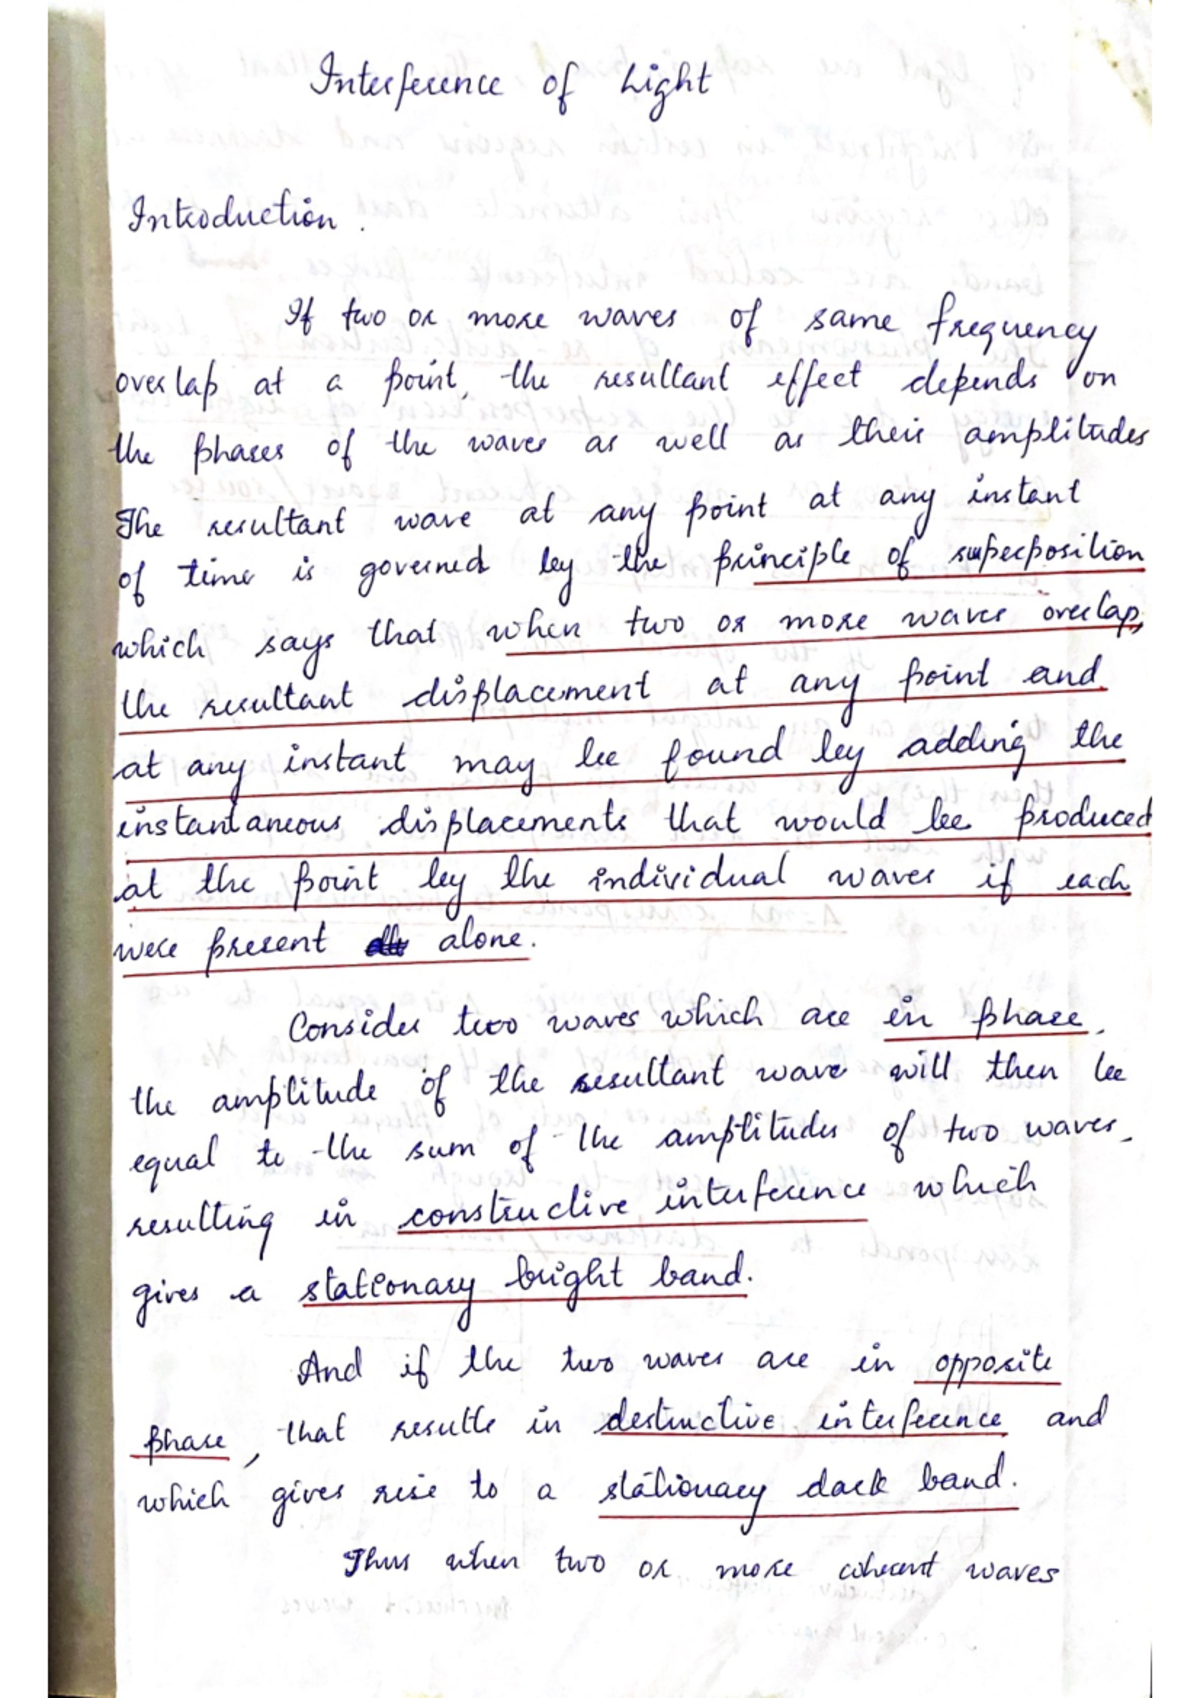 Interference of Light
Introduction.
If two or more waves of same frequency
overlap at a point, the resultant effect depends on
the phases of the waves as well as their amplitudes
The resultant wave at any point at any instant
of time is governed by the principle of superposition
which says that when two or more waves overlap,
the resultant displacement at any point and
at any instant may be found by adding the
instantaneous displacements that would be produced
at the point by the individual waves if each
were present alone.
Consider two waves which are in phase.
the amplitude of the resultant wave will then be
equal to the sum of the amplitudes of two waves,
resulting in constructive interference which
gives a stationary bright band.
And if the two waves are in opposite
phase, that results in destructive interference and
which gives rise to a stationary dark band.
Thus when two or more coherent waves